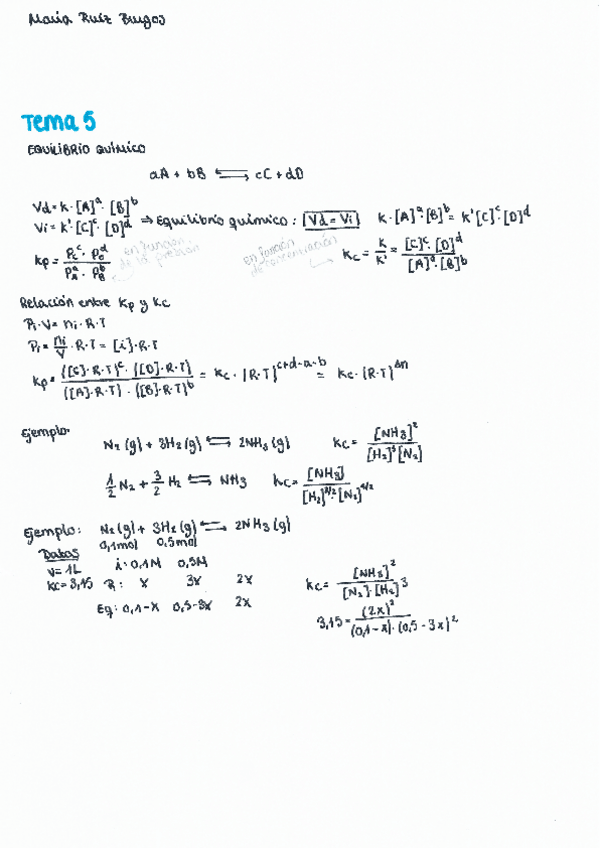 Maria Ruiz Burgos
Tema 5
EQUILIBRIO QUÍMICO
aA + bB ⇌ cC + dD
Vd = K · [A]^a · [B]^b
Vi = K' · [C]^c · [D]^d ⇒ Equilibrio químico: Vd = Vi K · [A]^a · [B]^b = K' [C]^c · [D]^d
Kp = P_C^c · P_D^d / P_A^a · P_B^b en función de la presión en función de concentración Kc = K/K' = [C]^c · [D]^d / [A]^a · [B]^b
Relación entre Kp y Kc
Pi · V = ni · R · T
Pi = ni/V · R · T = [i] · R · T
Kp = ([C] · R · T)^c · ([D] · R · T) / ([A] · R · T) · ([B] · R · T)^b = Kc · (R · T)^c+d-a-b = Kc · (R · T)^Δn
Ejemplo:
N2 (g) + 3H2 (g) ⇌ 2NH3 (g) Kc = [NH3]^2 / [H2]^3 [N2]
1/2 N2 + 3/2 H2 ⇌ NH3 Kc = [NH3] / [H2]^3/2 · [N2]^1/2
Ejemplo: N2 (g) + 3H2 (g) ⇌ 2NH3 (g)
0,1mol 0,5mol
Datos
V = 1L i: 0,1M 0,5M
Kc = 3,15 R: x 3x 2x Kc = [NH3]^2 / [N2] · [H2]^3
Eq: 0,1-x 0,5-3x 2x
3,15 = (2x)^2 / (0,1-x) · (0,5-3x)^2